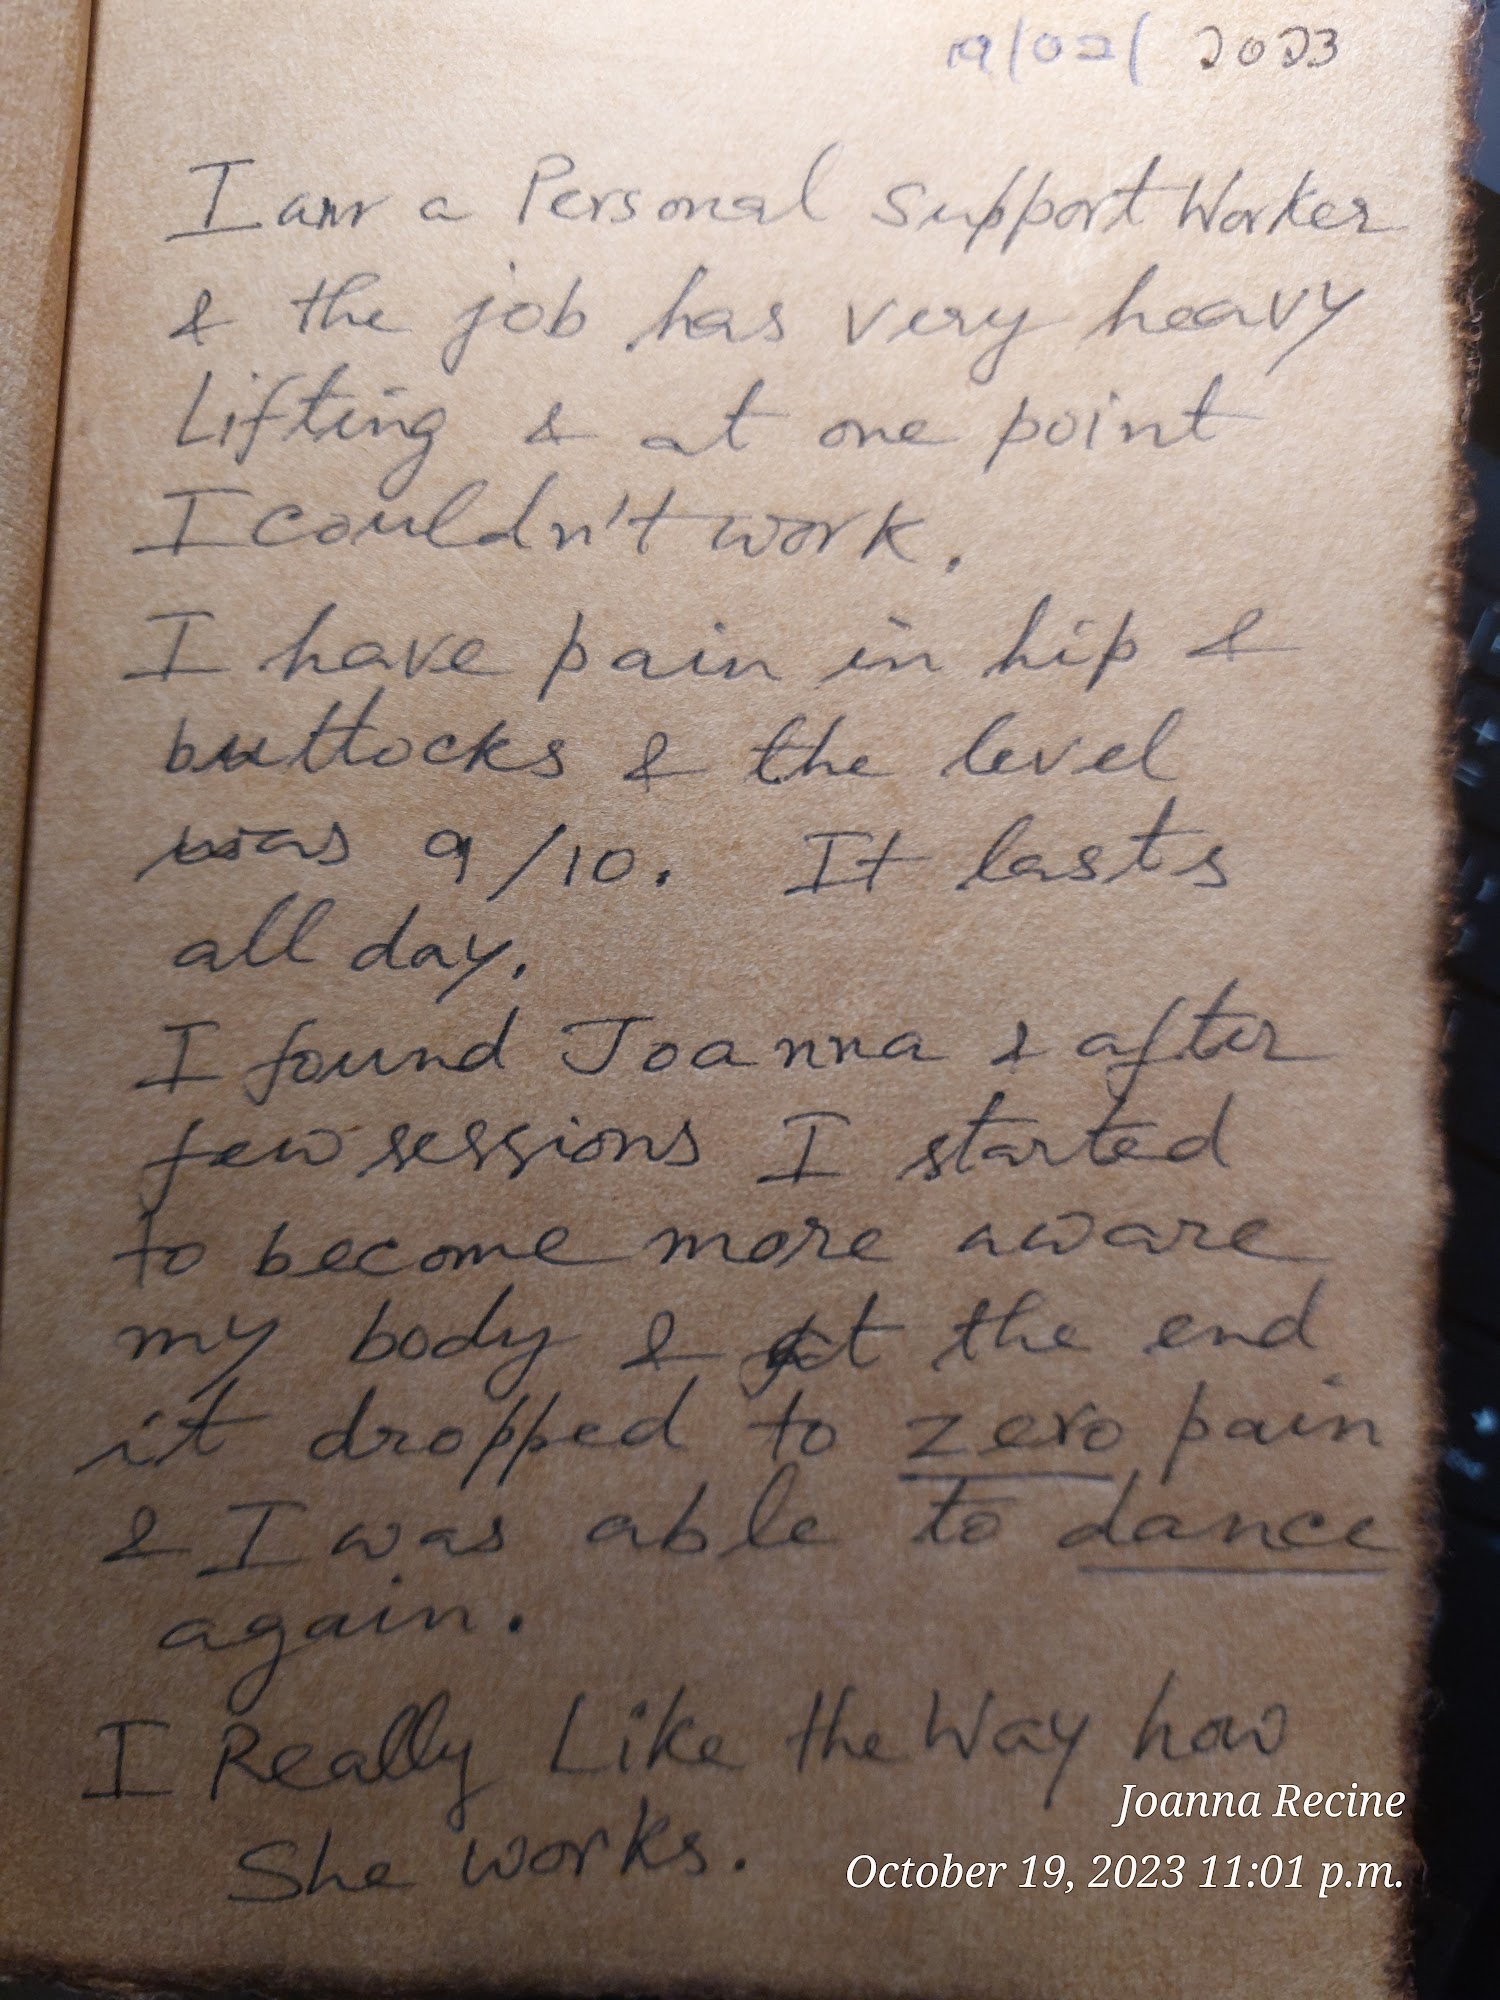 19/02/ 2023
I am a Personal Support Worker
& the job has very heavy
Lifting & at one point
I couldn't work.
I have pain in hip &
buttocks & the level
was 9/10. It lasts
all day.
I found Joanna & after
few sessions I started
to become more aware
my body & at the end
it dropped to zero pain
& I was able to dance
again.
I Really Like the Way how
She works.
Joanna Recine
October 19, 2023 11:01 p.m.